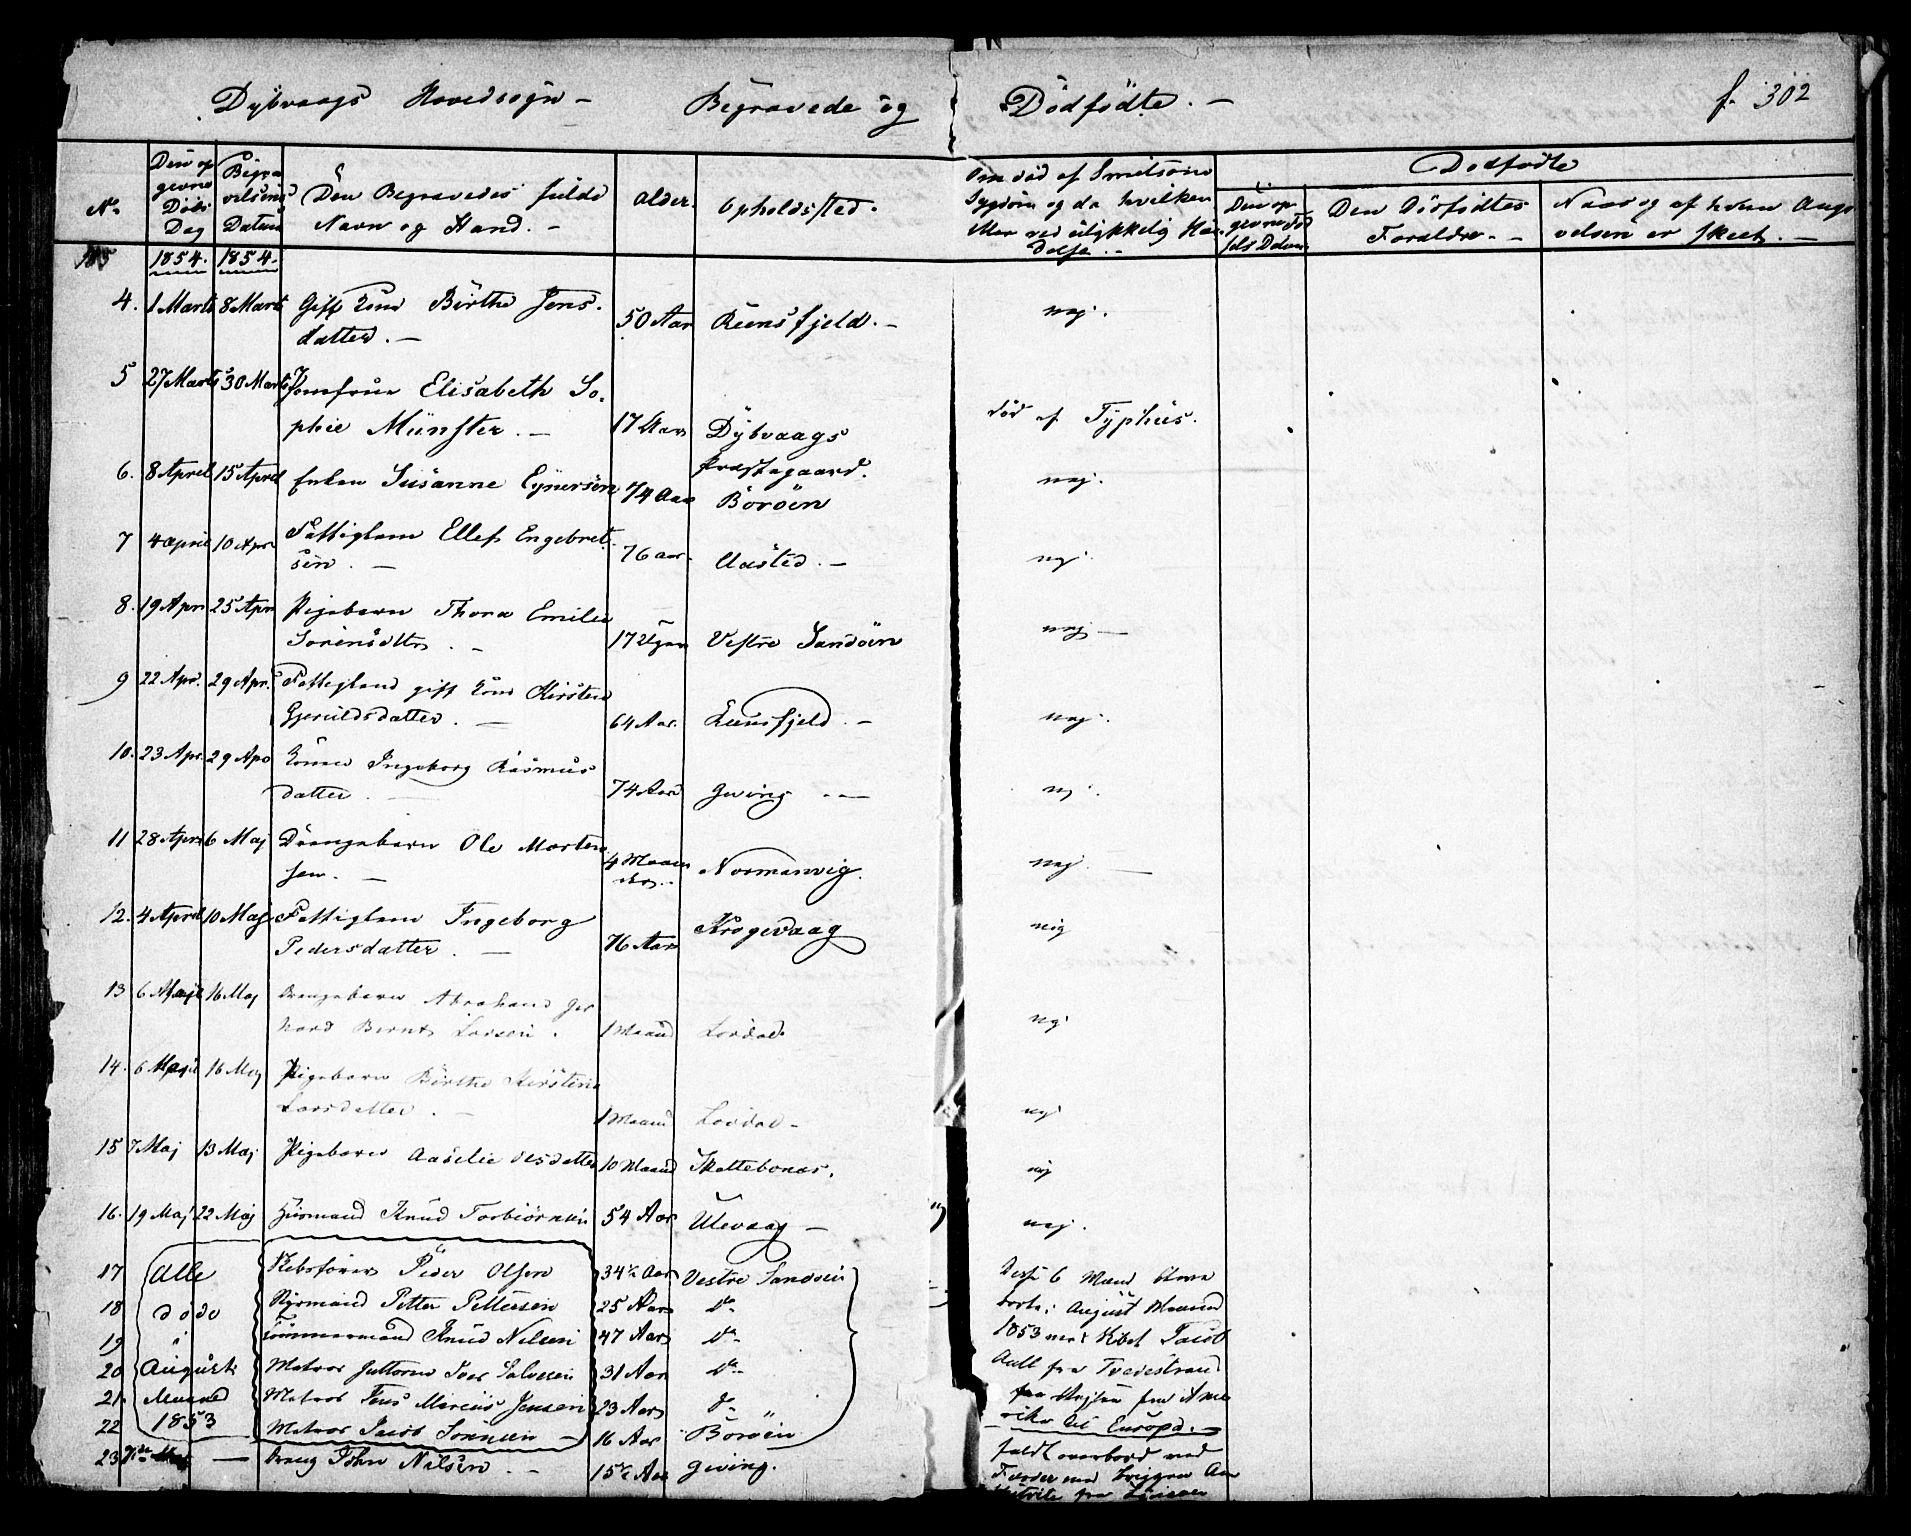 Dybvaags Hovedsogn — Begravede og Dödfödte. — f. 302
No. Den op Begra Den Begravedes fulde Alder. Opholdssted. Om död af Smitsom Dødfødte
givne velsens Navn og Stand. — Sygdom og da hvilken Den op Den Dödfödtes Naar og af hvem Angi
Döds Datum Eller ved ulykkelig Hæn givne Föd Forældre. — velsen er skeet. —
Dag delse. — sels Datum
1854. 1854.
4. 1 Marts 8 Marts Gift Kone Birthe Jens
datter. — 50 Aar Reensfjeld. — nej.
5 27 Marts 30 Marts Jomfrue Elisabeth So
phie Münster. — 17 Aar Dybvaags död af Typhus.
Præstegaard.
6. 8 April 15 April Enken Susanne Eynersen 74 Aar Boröen nej.
7 4 april 10 Apr Fattiglem Ellef Engebret
sen. — 76 aar. Aasted. — nej.
8. 19 Apr 25 Apr Pigebarn Thora Emilie
Sörensdtr. — 17 Uger Vestre Sandöen nej —
9 22 Apr. 29 Apr. Fattiglem gift Kone Kirsten
Gjeruldsdatter. — 64 Aar. Leensfjeld. — nej.
10. 23 Apr. 29 Apr Konen Ingeborg Rasmus
datter. — 74 Aar Gjeving — nej.
11 28 Apr 6 Maj Drengebarn Ole Morten
sen. — 4 Maane
der. — Normanvig. nej. —
12. 4 April 10 Maj Fattiglem Ingeborg
Pedersdatter. — 76 Aar Krogevaag nej
13 6 Maj 16 Maj Drengebarn Abraham Ger
hard Bernt Larsen. 1 Maaned Lovdal nej
14. 6 Maj 16 Maj Pigebarn Birthe Kirstine
Larsdatter. — 1 Maaned Lovdal — nej
15 7 Maj 13 Maj Pigebarn Aaselie Olsdatter 10 Maaned Skottebonæs. nej
16. 19 Maj 22 Maj Huusmand Knud Torbiörnsen 54 Aar Ulevaag — nej.
17 Alle Skibsförer Peder Olsen 34½ Aar Vestre Sandöen Disse 6 Mænd bleve
18 döde Styrmand Petter Pettersen 25 Aar do borte i August Maaned
19 i Tömmermand Knud Nilsen 47 Aar do 1853 med Skibet Jacob
20 August Matros Guttorm Ivar Salvesen 31 Aar do Aall fra Tvedestrand
21. Maaned Matros Jens Marcus Jensen 23 Aar do paa Rejsen fra Ame
22 1853 Matros Jacob Sörensen — 16 Aar Boröen rika til Europa. —
23 — Dreng John Nilsen. — 15½ Aar Gjeving. faldt overbord ved